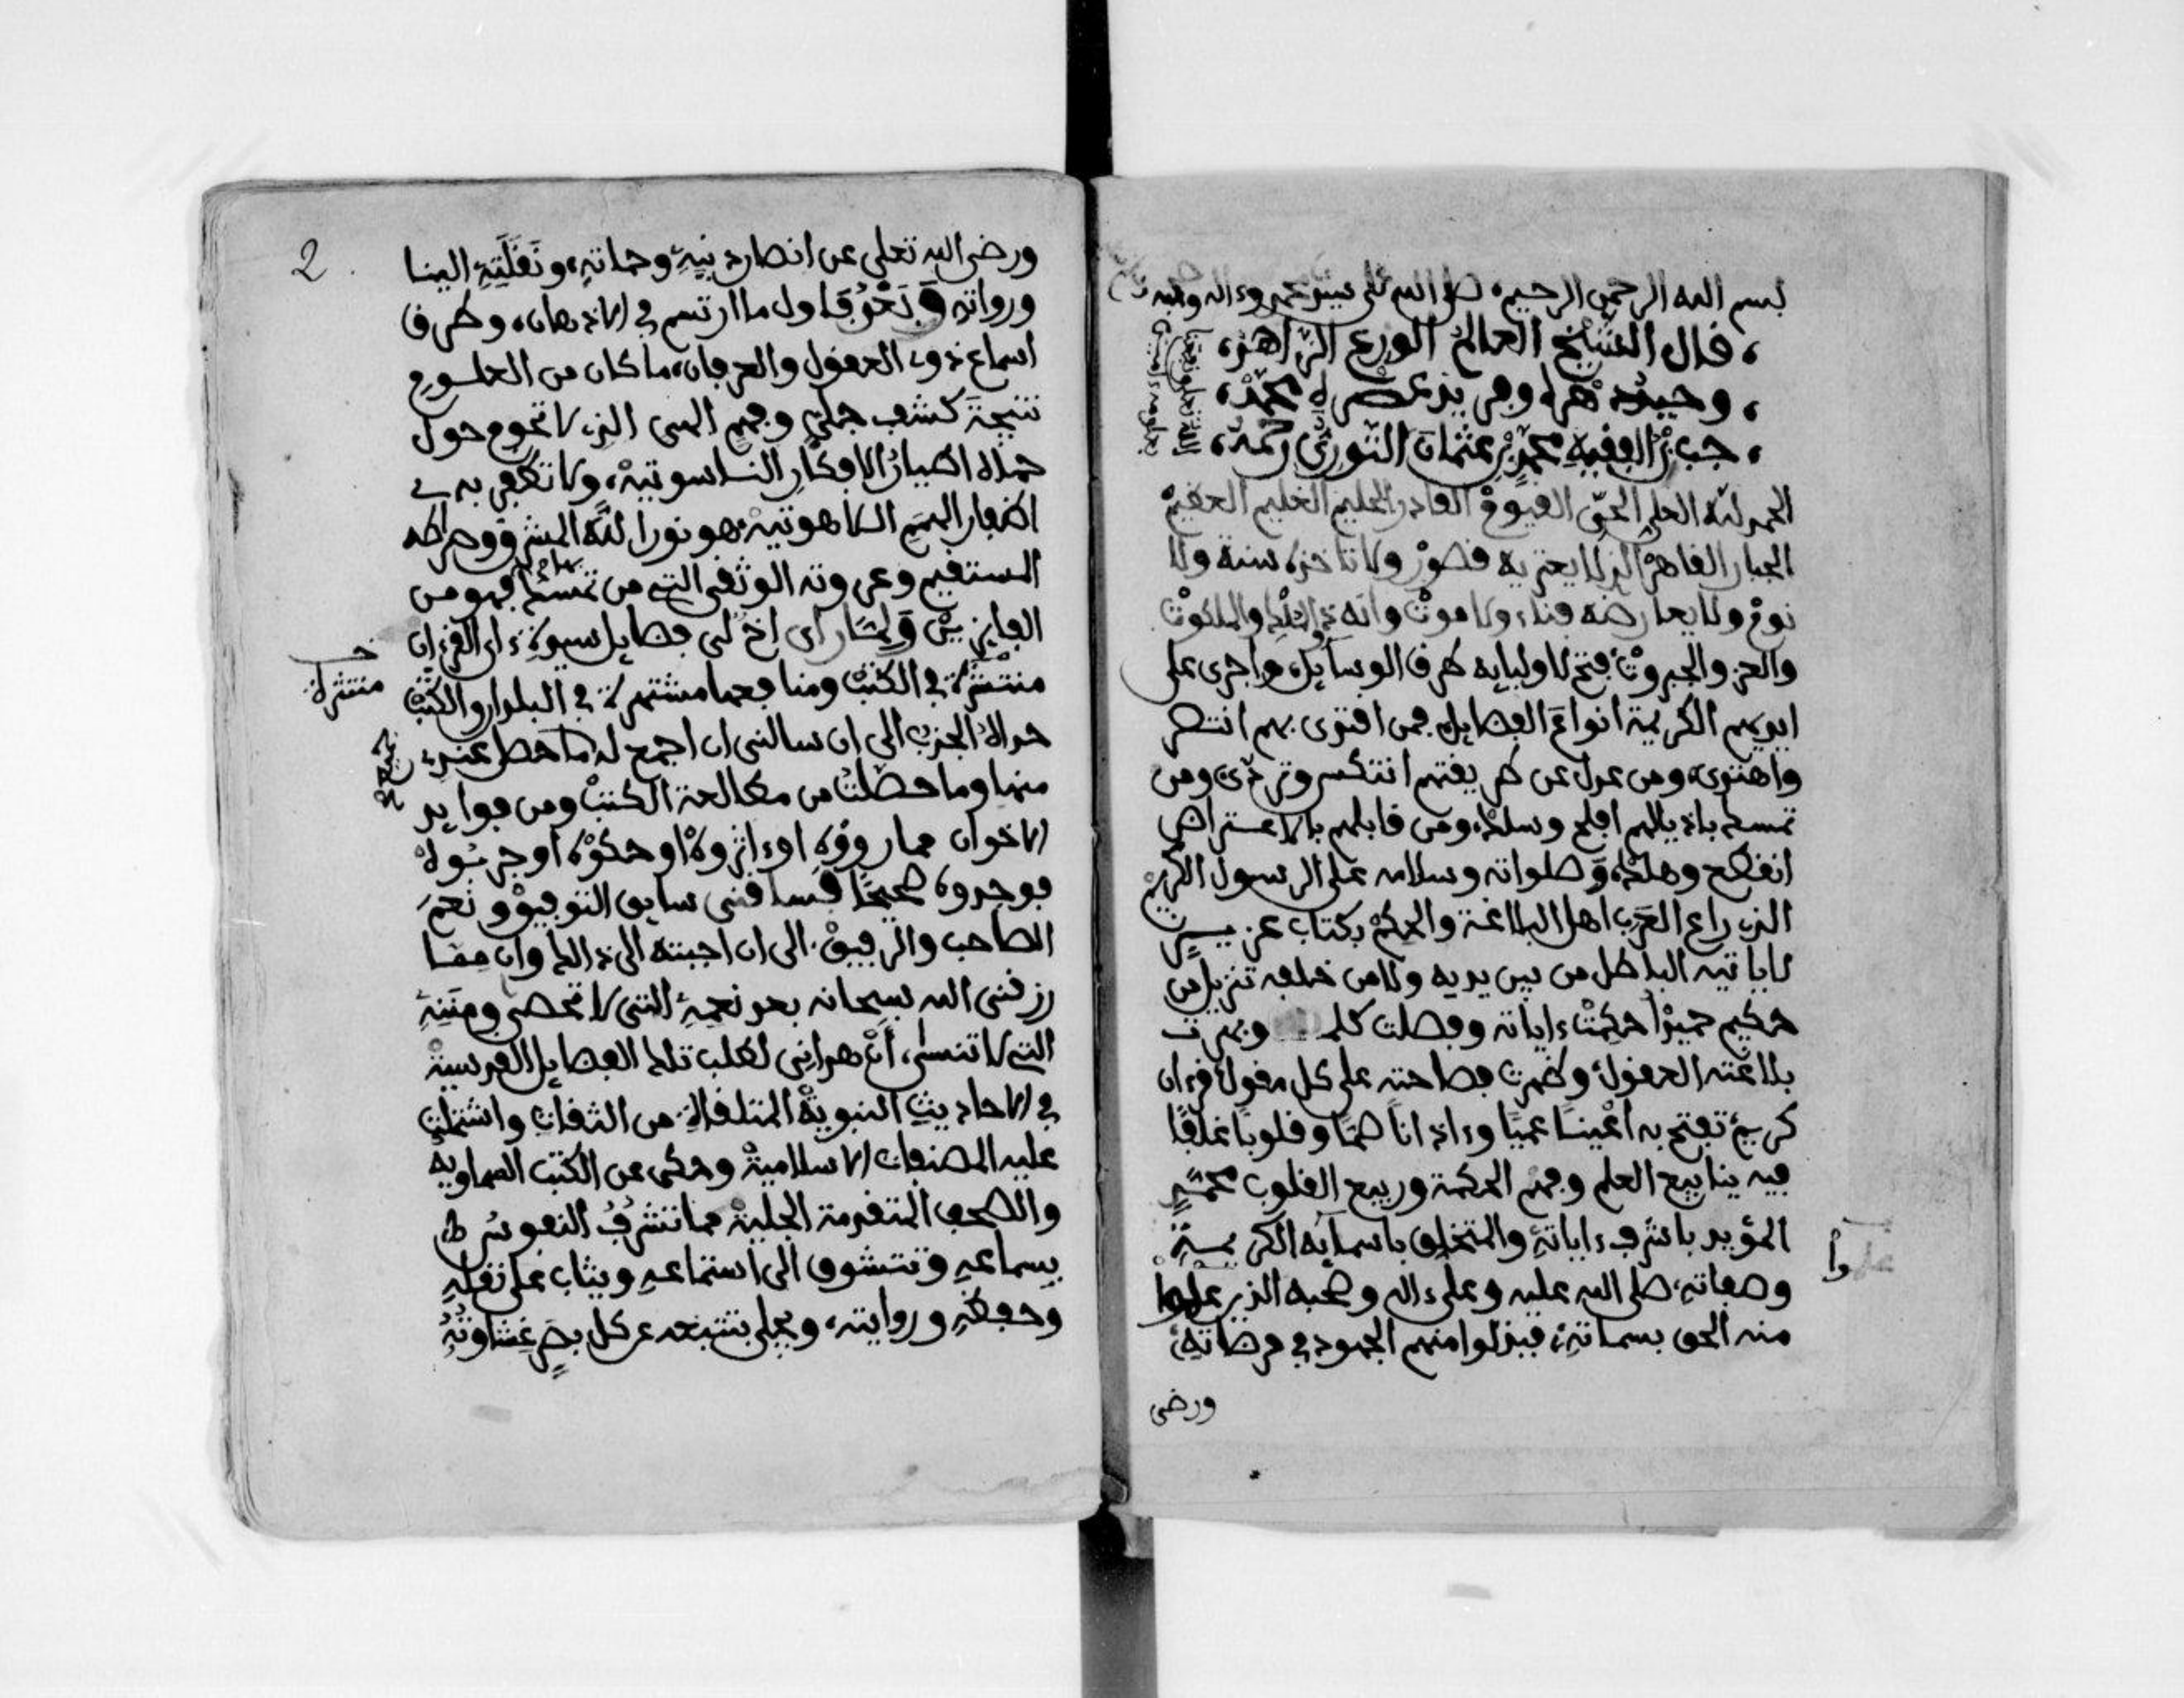 بسم الله الرحمن الرحيم، صلى الله على سيدنا محمد وءاله وصحبه
، قال الشيخ العالم الورع الزاهد،
، وحيد دهره وفريد عصره محمد،
، الفقيه محمد بن عثمان النوري رحمه،
الله تعلى ونفعنا
الحمد لله العلي الحق القيوم القادر الحليم العظيم
الجبار القاهر الذي لا يعتريه قصور ولا تاخذه سنة ولا
نوم ولا يعارضه فناء ولا موت وانه ذو الملك والملكوت
والعز والجبروت، فتح لاوليايه طرف الوسايل، واجرى على
ايديهم الكريمة انواع الفضايل، فمن اقتدى بهم انتصر
واهتدى، ومن عدل عن طريقتهم انتكس وتردى ومن
تمسك باذيالهم افلح وسلك، ومن قابلهم بالاعتراض
انقطع وهلك، وصلواته وسلامه على الرسول الكريم
الذي راع العرب اهل البلاغة والحكم بكتاب عزيز
لا ياتيه الباطل من بين يديه ولا من خلفه تنزيل من
حكيم حميد احكمت ءاياته وفصلت كلمـ وبهرت
بلاغته العقول وظهرت فصاحته على كل مقول قرءان
كريم تفتح به اعينا عميا وءاذانا صما وقلوبا غلفا
فيه ينابيع العلم وفهم الحكمة وربيع القلوب محمد
المؤيد باشرف ءاياته والمتخلق باسمايه الكريمة
وصفاته، صلى الله عليه وعلى ءاله وصحبه الذين علموا
منه الحق بسماته، فبذلوا منهم الجهود في مرضاته،
ورضى
2
ورضى الله تعلى عن انصار دينه وحماته، ونقلته الينا
ورواته وبعد فاول ما ارتسم في الاذهان، وطرق
اسماع ذوي العقول والعرفان، ما كان من العلوم
نتيجة كشف جملي وفهم السي الذي لا تحوم حول
حماه اطيار الافكار الناسوتية، ولا تظفر به
اظفار الهمم اللاهوتية، هو نور الله المشرق وصراطه
المستقيم وعروته الوثقى التي من تمسك بها فهو من
الفايزين ولما راى اخ لي فضايل سور القرءان
منتشرة في الكتب ومنافعها مشتهرة في البلدان والكتب
منتثرة
حداه الجذب الى ان سالني ان اجمع له ما حصل عندي
منها وما حصلت من مطالعة الكتب ومن فوايد
الاخوان مما رووه او اثروه او حكوه او جربوه
فوجدوه صحيحا فساقني سايق التوفيق ونعم
الصاحب والرفيق، الى ان اجبته الى ذلك وان مما
رزقني الله سبحانه بعد نعمه التي لا تحصى ومننه
التي لا تنسى، ان هداني لطلب تلك الفضايل القدسية
في الاحاديث النبوية المتلقاة من الثقات واشتملت
عليه المصنفات الاسلامية وحكى عن الكتب السماوية
والصحف المتقدمة الجلية مما تتشرف النفوس
بسماعه وتتشوق الى استماعه ويثاب على نقله
وحفظه وروايته، ويجلى بتتبعه عن كل بصر غشاوته